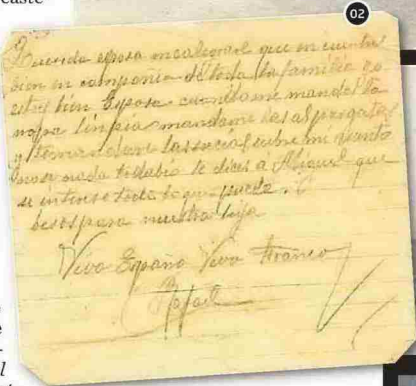 caste
02
Querida esposa me alegraré que encuentres
bien en compañia de toda la familia yo
estoy bien Esposa cuando me mandes la
ropa limpia mandame las alpargatas
y te mandare la sucia sobre mi
nada todabia le dices a Miguel que
se interese todo lo que pueda
besos para nuestra hija
Viva España Viva Franco
Rafael
l